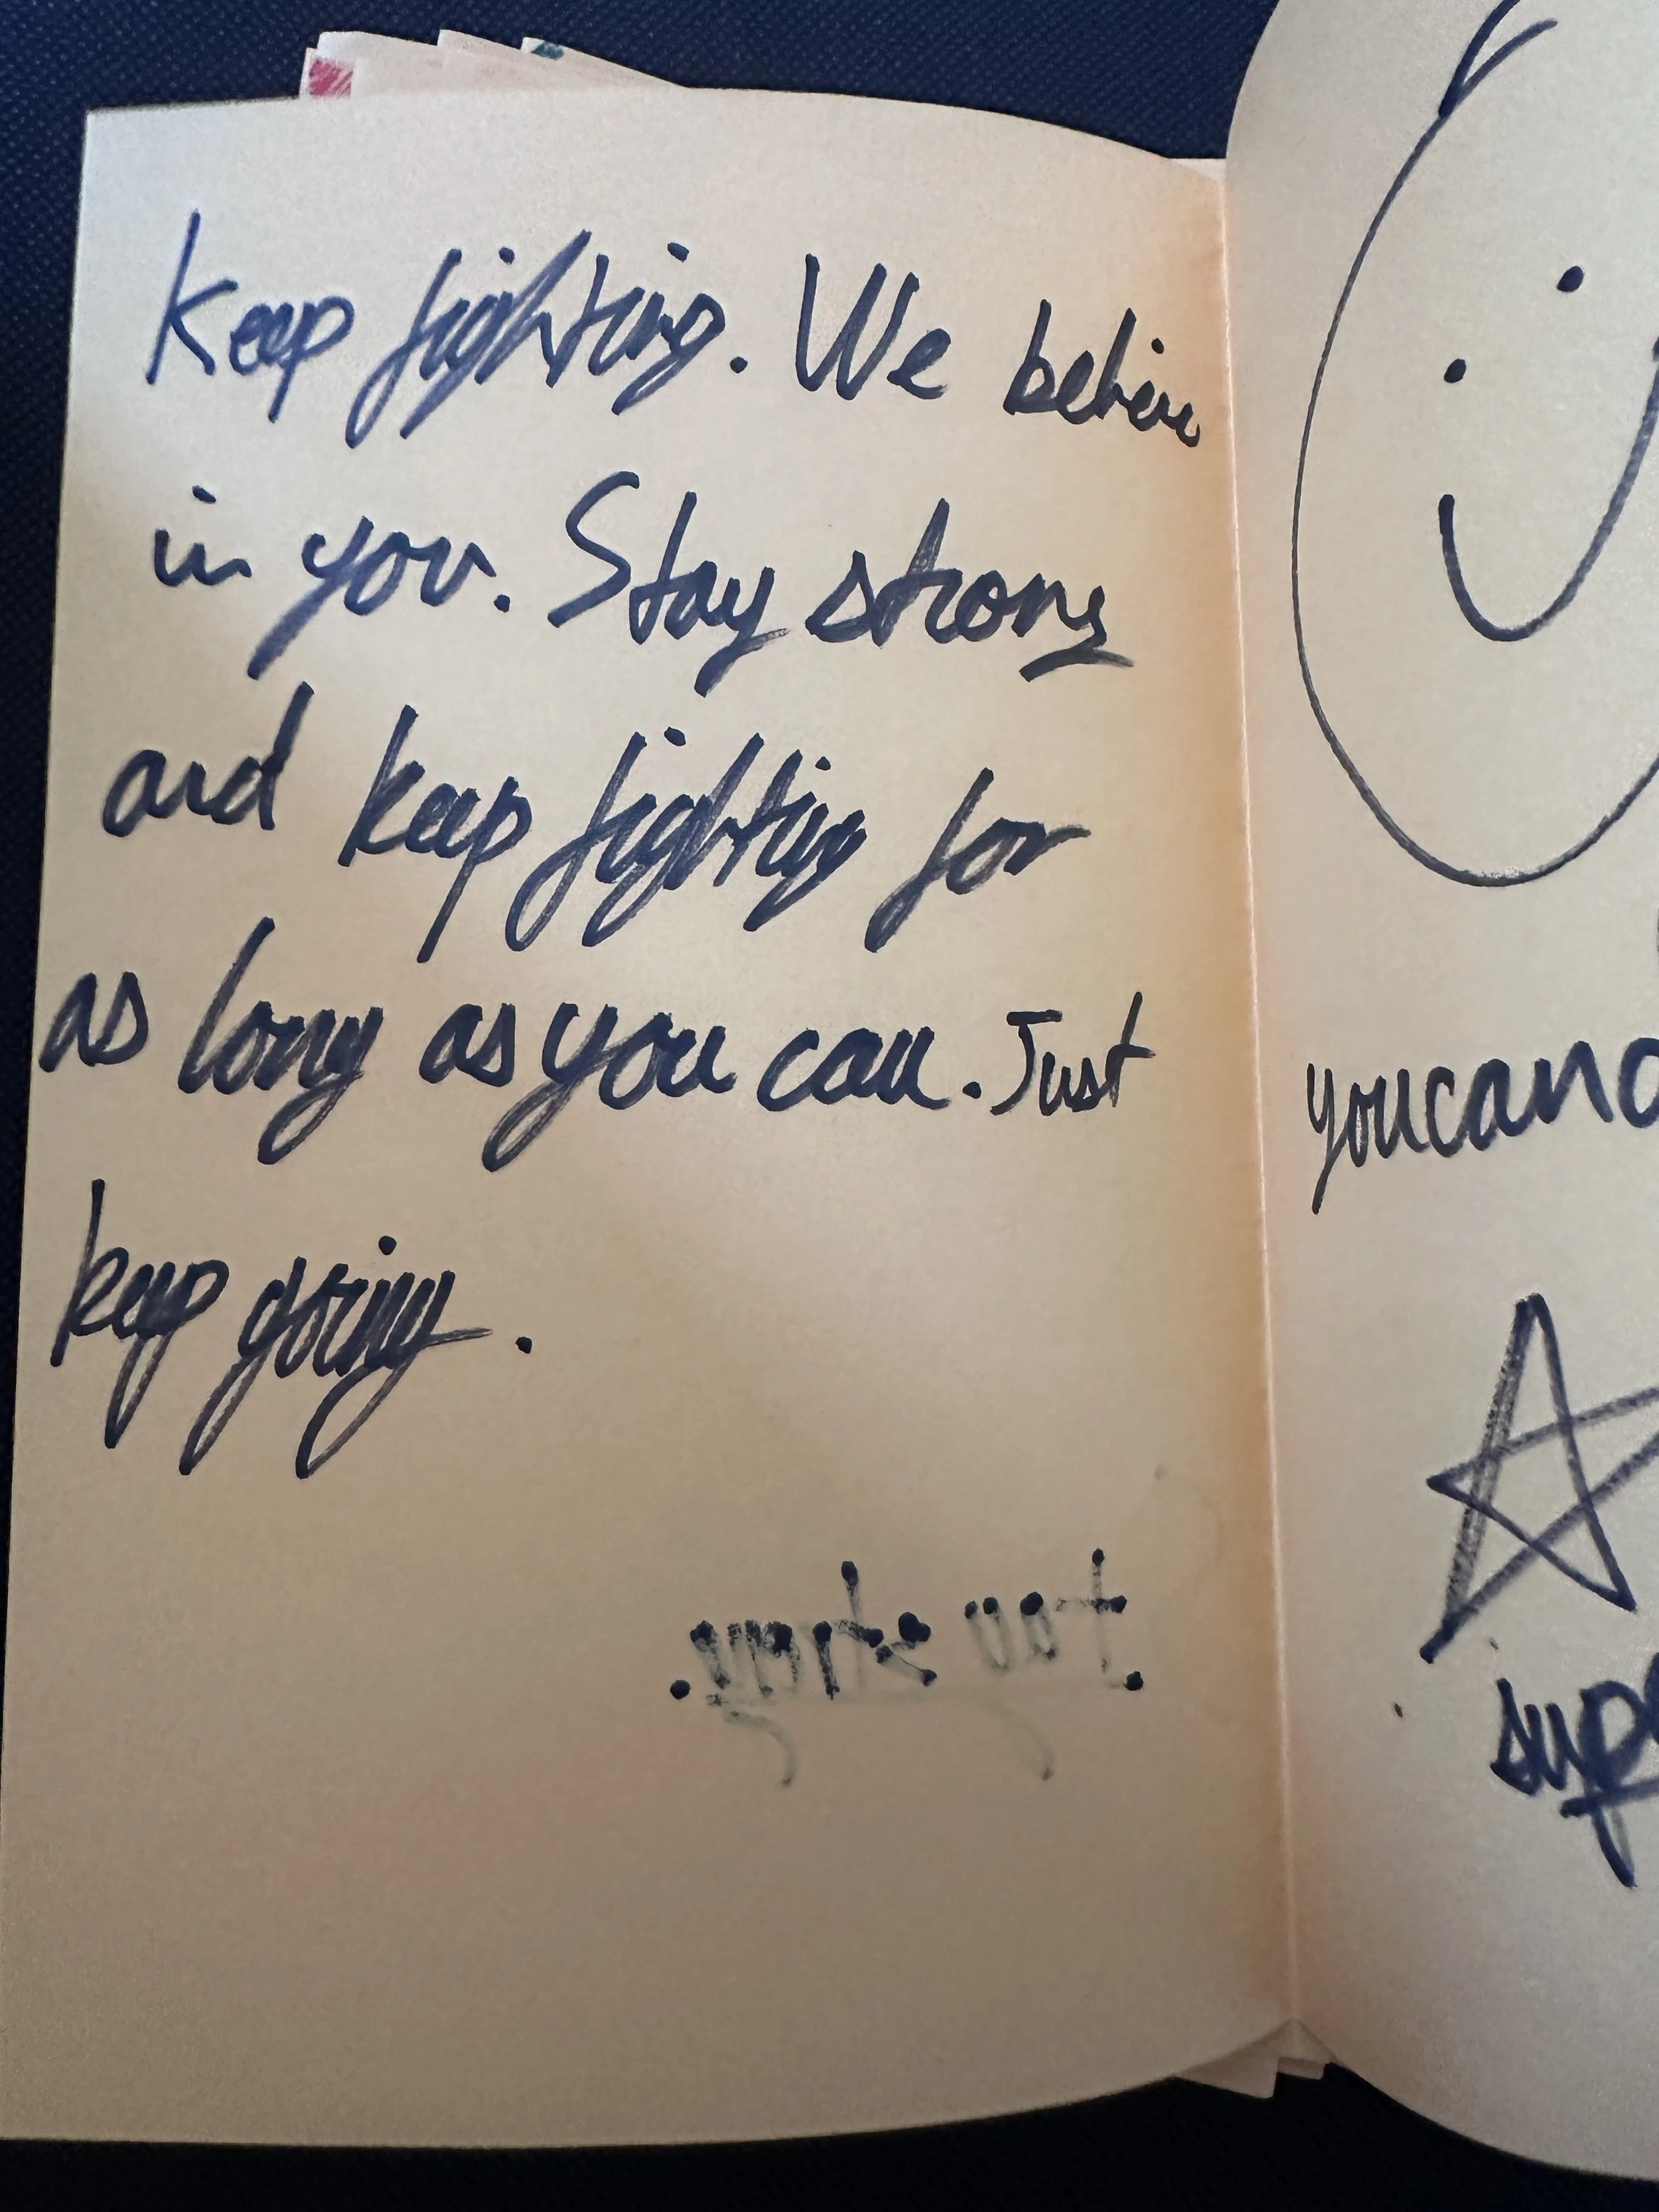 Keep fighting. We believe
in you. Stay strong
and keep fighting for
as long as you can. Just
keep going.
stay strong.
youcand
supe